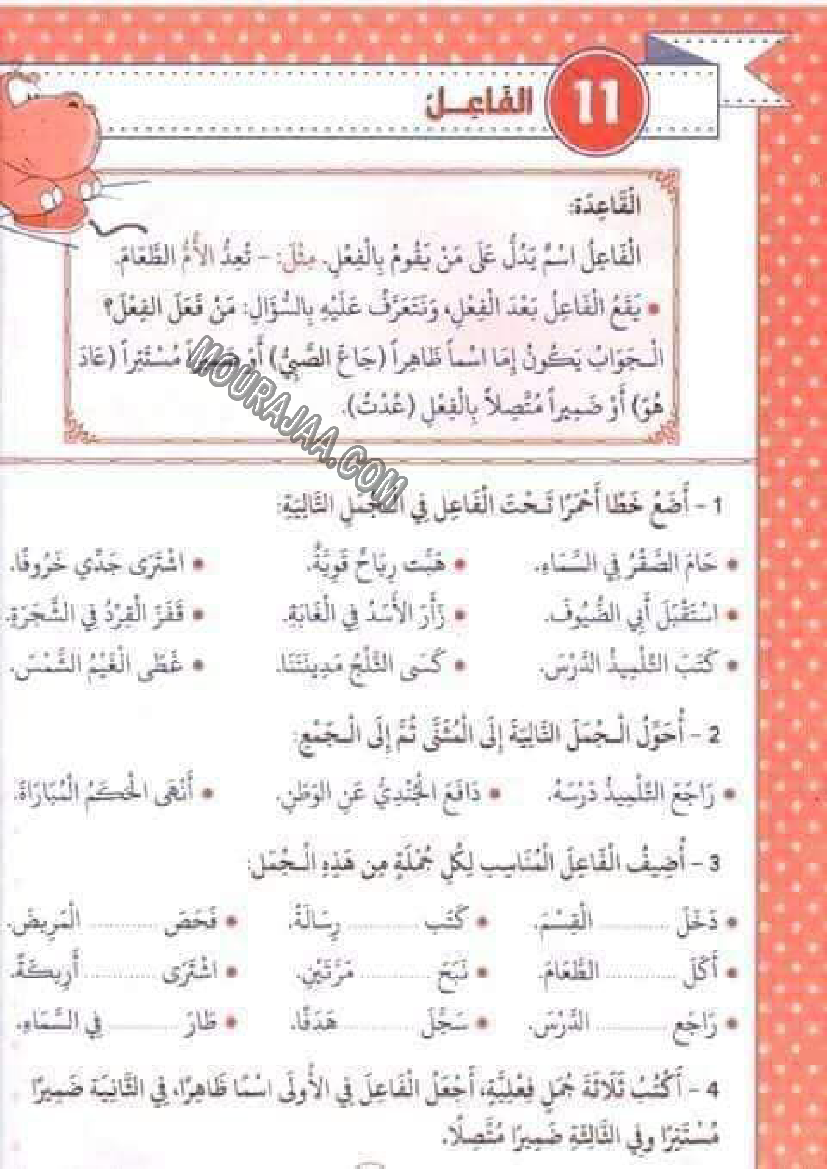 11 الفَاعِـلُ
الْقَاعِدَة:
الْفَاعِلُ اسْمٌ يَدُلُّ عَلَى مَنْ يَقُومُ بِالْفِعْلِ. مِثْلَ: – تُعِدُّ الأُمُّ الطَّعَامَ.
• يَقَعُ الْفَاعِلُ بَعْدَ الْفِعْلِ، وَنَتَعَرَّفُ عَلَيْهِ بِالسُّؤَالِ: مَنْ فَعَلَ الفِعْلَ؟
الْـجَوَابُ يَكُونُ إِمَا اسْماً ظَاهِراً (جَاعَ الصَّبِيُّ) أَوْ مُسْتَتِراً (عَادَ
هُوَ) أَوْ ضَمِيراً مُتَّصِلاً بِالْفِعْلِ (عُدْتُ).
MOURAJAA.COM
1 – أَضَعُ خَطًا أَحْمَرًا تَـحْتَ الْفَاعِلِ فِي الْـجُمَلِ التَّالِيَةِ:
• حَامَ الصَّقْرُ فِي السَّمَاءِ. • هَبَّت رِيَاحٌ قَوِيَةٌ. • اشْتَرَى جَدِّي خَرُوفًا.
• اسْتَقْبَلَ أَبِي الضُّيُوفَ. • زَأَرَ الأَسَدُ فِي الْغَابَةِ. • قَفَزَ الْقِرْدُ فِي الشَّجَرَةِ.
• كَتَبَ التِّلْمِيذُ الدَّرْسَ. • كَسَى الثَّلْجُ مَدِينَتَنَا. • غَطَّى الْغَيْمُ الشَّمْسَ.
2 – أُحَوِّلُ الْـجُمَلَ التَّالِيَةَ إِلَى الْمُثَنَّى ثُمَّ إِلَى الْـجَمْعِ:
• رَاجَعَ التِّلْمِيذُ دَرْسَهُ. • دَافَعَ الْجُنْدِيُّ عَنِ الوَطَنِ. • أَنْهَى الْحَكَمُ الْمُبَارَاةَ.
3 – أُضِيفُ الْفَاعِلَ الْمُنَاسِب لِكُلِّ جُمْلَةٍ مِن هَذِهِ الْـجُمَل:
• دَخَلَ ............ الْقِسْمَ. • كَتَب ............ رِسَالَةً. • فَحَصَ ............ الْمَرِيضَ.
• أَكَلَ ............ الطَّعَامَ. • نَبَحَ ............ مَرَّتَيْنِ. • اشْتَرَى ............ أَرِيكَةً.
• رَاجَع ............ الدَّرْسَ. • سَجَّلَ ............ هَدَفًا. • طَارَ ............ فِي السَّمَاءِ.
4 – أَكْتُبُ ثَلَاثَةَ جُمَلٍ فِعْلِيَّةٍ، أَجْعَلُ الْفَاعِلَ فِي الأُولَى اسْمًا ظَاهِرًا، فِي الثَّانِيَة ضَمِيرًا
مُسْتَتِرًا وفِي الثَّالِثَةِ ضَمِيرًا مُتَّصِلًا.